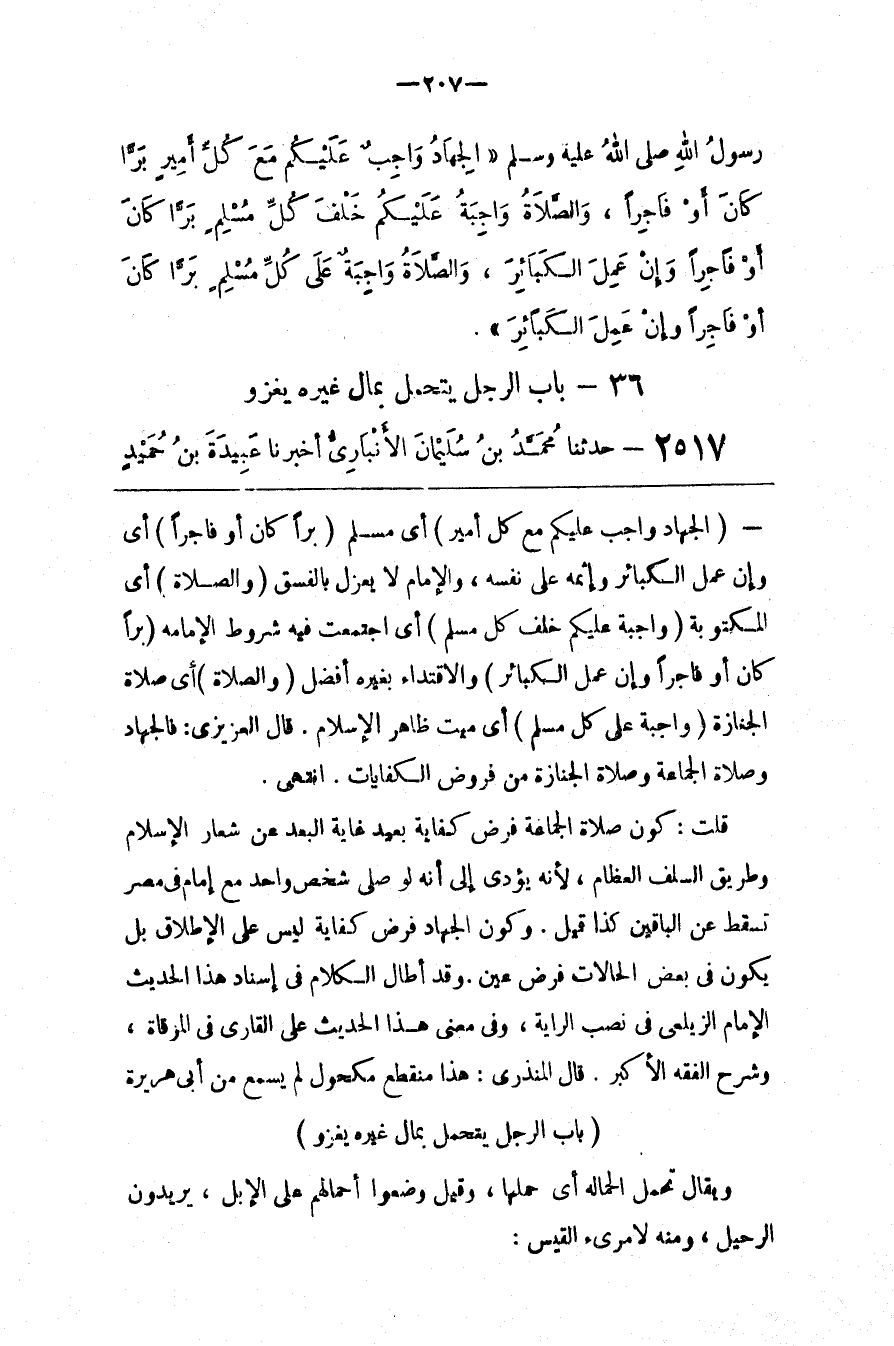 —٢٠٧—
رسولُ اللهِ صلى اللهُ علية وسلم « الِجهاَدُ وَاجِبٌ عَلَيْكُم مَعَ كُلِّ أَمِيرٍ بَرًّا
كَانَ أَوْ فَاجِراً ، وَالصَّلاَةُ وَاجِبَةُ عَلَيْكُمُ خَلْفَ كُلِّ مُسْلِمٍ بَرًّا كَانَ
أَوْ فَاجِراً وَإِنْ عَمِلَ الكَبَائِرَ ، وَالصَّلاَةُ وَاجِبَةٌ عَلَى كُلِّ مُسْلِمٍ بَرًّا كَانَ
أوْ فَاجِراً وإنْ عَمِلَ الكَبَائِرَ » .
٣٦ – باب الرجل يتحمل بمال غيره يغزو
٢٥١٧ – حدثنا مُحمَّدُ بنُ سُلَيْمَانَ الأَنْبَارِىُّ أخبرنا عَبِيدَةَ بنُ حُمَيْدٍ
– ( الجهاد واجب عليكم مع كل أمير ) أى مسلم ( براً كان أو فاجراً ) أى
وإن عمل الكبائر وإثمه على نفسه ، والإمام لا يعزل بالفسق ( والصلاة ) أى
المكتوبة ( واجبة عليكم خلف كل مسلم ) أى اجتمعت فيه شروط الإمامه ( براً
كان أو فاجراً وإن عمل الكبائر ) والاقتداء بغيره أفضل ( والصلاة ) أى صلاة
الجنازة ( واجبة على كل مسلم ) أى ميت ظاهر الإسلام . قال العزيزى : فالجهاد
وصلاة الجماعة وصلاة الجنازة من فروض الكفايات . انتهى .
قلت : كون صلاة الجماعة فرض كفاية بعيد غاية البعد عن شعار الإسلام
وطريق السلف العظام ، لأنه يؤدى إلى أنه لو صلى شخص واحد مع إمام فى مصر
تسقط عن الباقين كذا قيل . وكون الجهاد فرض كفاية ليس على الإطلاق بل
يكون فى بعض الحالات فرض عين . وقد أطال الكلام فى إسناد هذا الحديث
الإمام الزيلعى فى نصب الراية ، وفى معنى هذا الحديث على القارى فى المرقاة ،
وشرح الفقه الأكبر . قال المنذرى : هذا منقطع مكحول لم يسمع من أبى هريرة
( باب الرجل يتحمل بمال غيره يغزو )
ويقال تحمل الحاله أى حملها ، وقيل وضعوا أحمالهم على الإبل ، يريدون
الرحيل ، ومنه لامرىء القيس :